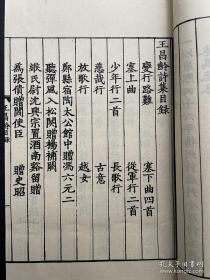 王昌齡詩集目錄
變行路難 塞下曲四首
塞上曲 從軍行二首
少年行二首 長歌行
悲哉行 古意
放歌行 越女
鄭縣宿陶太公館中贈馮六元二
聽彈風入松闋贈楊補闕
緱氏尉沈興宗置酒南谿留贈
為張僓贈閻使臣 贈史昭